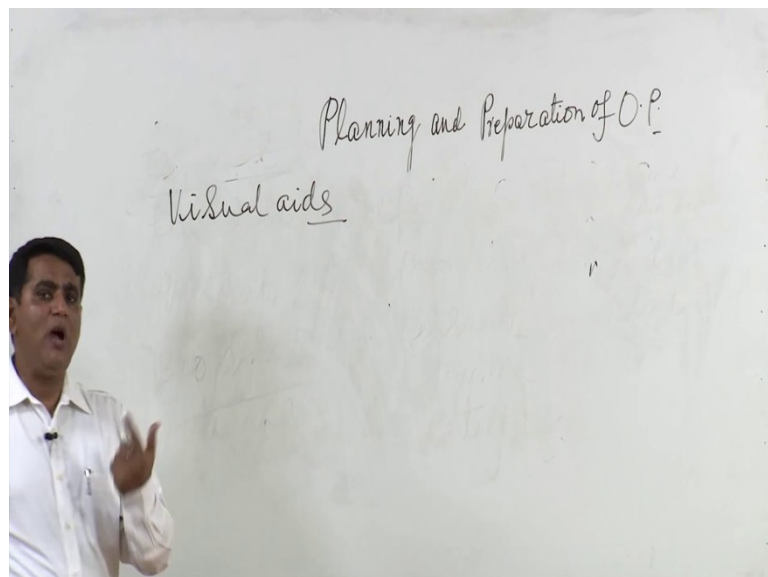 Planning and Preparation of O.P.
Visual aids